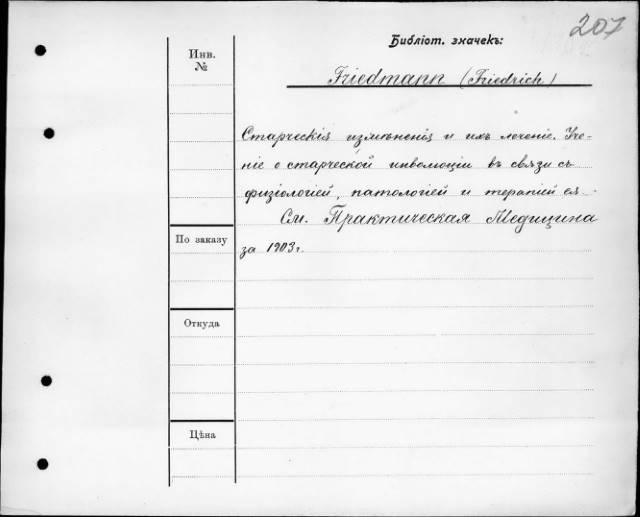 207
Библіот. значекъ:
Инв.
№
Friedmann (Friedrich)
Старческія измѣненія и ихъ леченіе. Уче-
ніе о старческой инволюціи въ связи съ
физіологіей, патологіей и терапіей ея.
См. Практическая Медицина
за 1903 г.
По заказу
Откуда
Цѣна